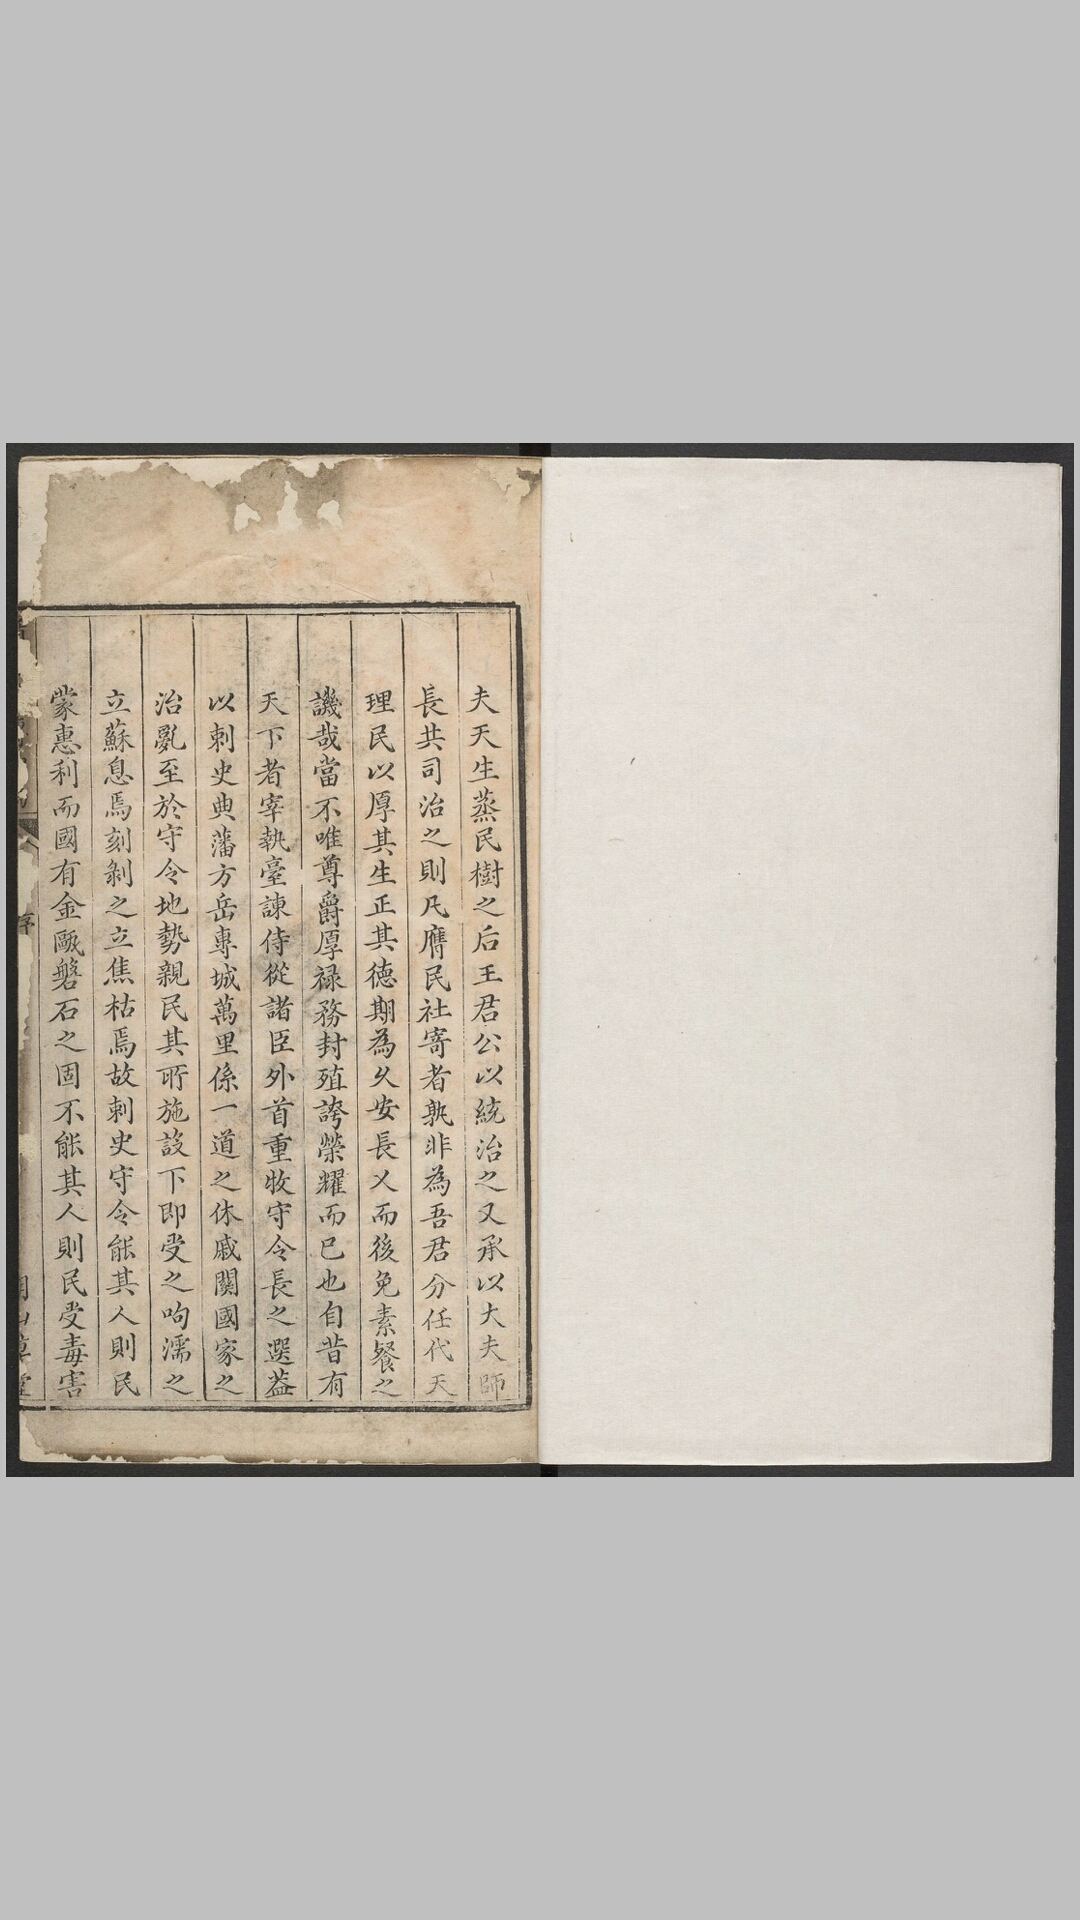 夫天生蒸民樹之后王君公以統治之又承以大夫師
長共司治之則凡膺民社寄者孰非為吾君分任代天
理民以厚其生正其德期為久安長乂而後免素餐之
譏哉當不唯尊爵厚祿務封殖誇榮耀而已也自昔有
天下者宰執臺諫侍從諸臣外首重牧守令長之選葢
以刺史典藩方岳專城萬里係一道之休戚關國家之
治亂至於守令地勢親民其所施設下即受之呴濡之
立蘇息焉刻剝之立焦枯焉故刺史守令能其人則民
蒙惠利而國有金甌磐石之固不能其人則民受毒害
序